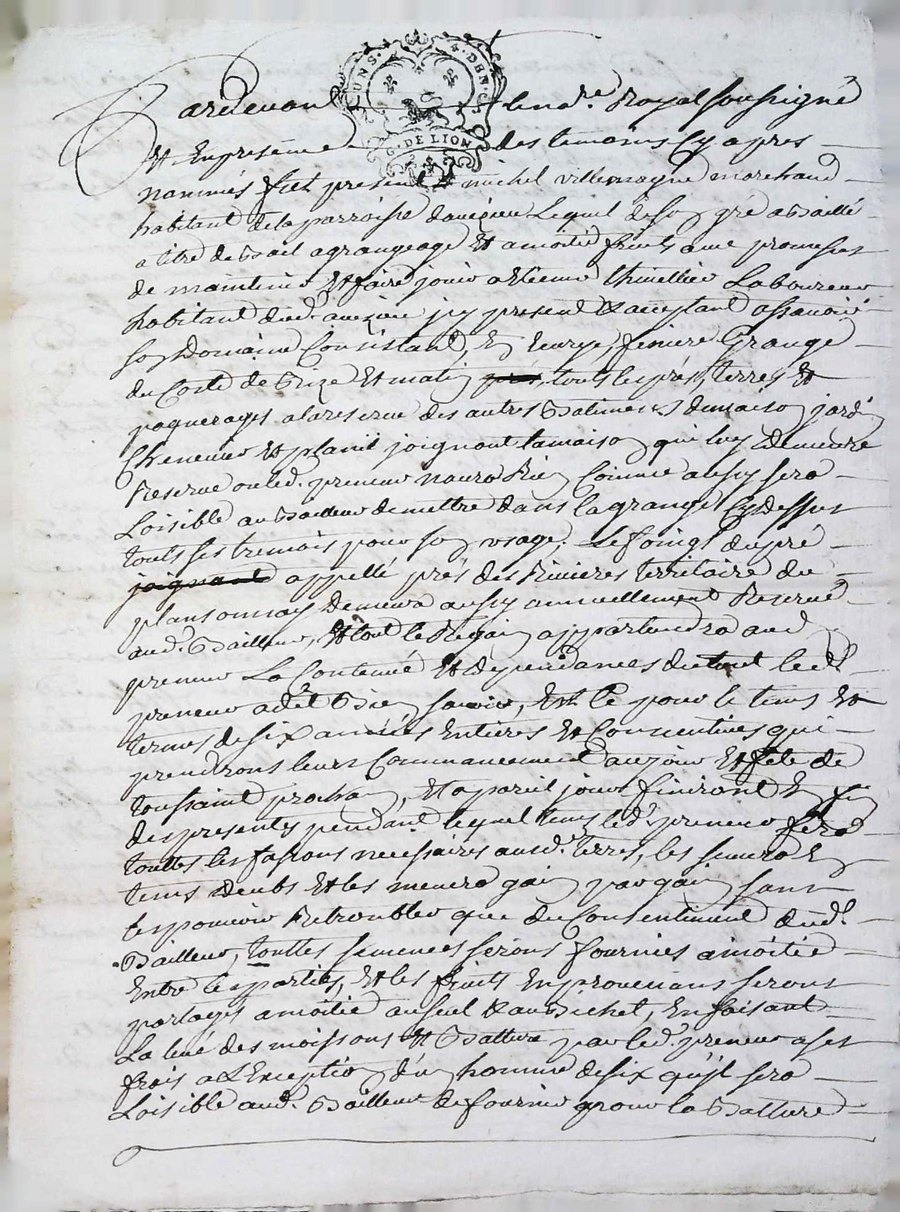 UN S. 4. DEN.
G. DE LION
Pardevant le no.re Royal soussigné
Et En presence des temoins Cy apres
nommés fut present Sr michel villemagne marchand
habitant de la parroisse d'aveizieu Lequel de son gré a Baillé
a titre de Bail a grangeage Et a moitié fruits avec promesses
de maintenir Et faire jouir a Etienne thivellier Laboureur
habitant dud. aveizieu icy present Et acceptant assavoir
son Domaine Consistant, En Ecurye, feniere Grange
du Costé de Bize Et matin, touts les prés, terres, Et
paquerages a la reserve des autres Batiments de maison jardin
Cheneviere Et planil joignant la maison qui luy Demeure
Reservé ou led. preneur n'aura Rien Comme aussy sera
Loisible au Bailleur de mettre dans la grange Cy dessus
touts ses tremois pour son usage, Le foing du pré
joignant appellé prés des Rivieres territoire de
plansonnay demeura aussy annuellement Reservé
aud. Bailleur, Et tout le Regain appartiendra aud.
preneur La Contenue Et dependances du tout led.
preneur a dit Bien scavoir, Et Ce pour le tems Et
termes de six années Entieres Et Consecutives qui
prendrons leurs Commancement au jour Et fete de
toussaint prochain, Et a pareil jour finiront En fin
des presentes pendant lequel tems led. preneur fera
touttes les fassons necessaires ausd. terres, les semera En
tems deubs Et les menera gain par gain sans
les pouvoir Retroubler que du Consentiment dud.
Bailleur, touttes semences serons fournies a moitié
Entre les parties, Et les fruits En provenans serons
partagés a moitié au seul Et au Bichet, En faisant
La levé des moissons Et Batture par led. preneur a ses
frais a L'Exception d'un homme de six qu'il sera
Loisible aud. Bailleur de fournir pour la Batture